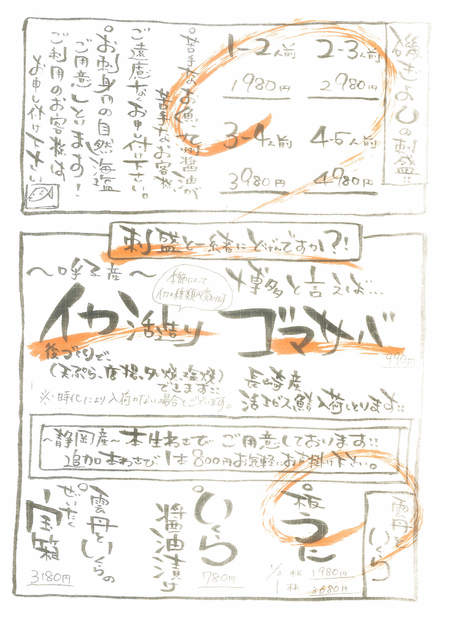 磯きよしの刺盛!!
1-2人前
1980円
2-3人前
2980円
3-4人前
3980円
4-5人前
4980円
苦手なお魚や
苦手なお客様
ご遠慮なくお申し付け下さい。
お刺身用の自然海塩
ご用意しています!
ご利用のお客様は
お申し付け下さい
刺盛と一緒にどげんですか?!
〜呼子産〜
イカ活造り
後づくりで、
(天ぷら、塩焼)
できます!!
※・時化により入荷がない場合もございます。
博多と言えば…
ゴマサバ
長崎産
活きピチ入荷しとります!!
〜静岡産〜本生わさびご用意しております!!
追加本わさび1本800円お気軽にお声掛け下さい。
雲丹といくら
板うに
1/2枚 1980円
いくら
醤油漬け
780円
雲丹といくらの
ぜいたく
宝箱
3180円